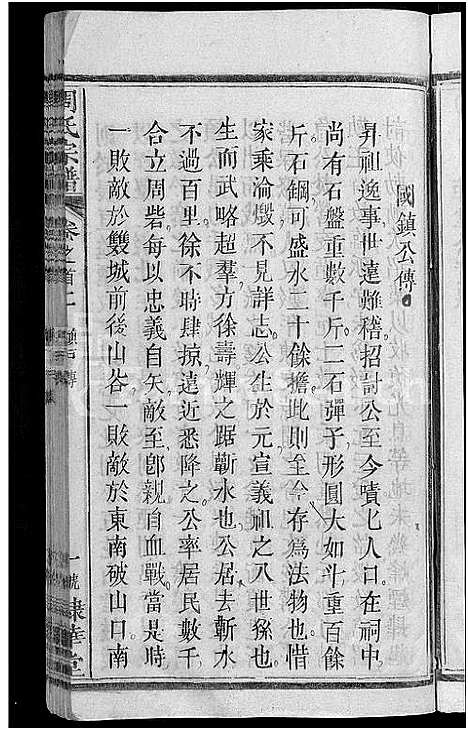 國鎮公傳
昇祖逸事世遠難稽招討公至今嘖匕人口在祠中
尚有石盤重數千斤二石彈子形圓大如斗重百餘
斤石鋼可盛水二十餘擔此則至今存爲法物也惜
家乘淪燬不見詳志公生於元宣義祖之八世孫也
生而武略超羣方徐壽輝之踞蘄水也公居去蘄水
不過百里徐不時肆掠遠近悉降之公率居民數千
合立周砦每以忠義自矢敵至卽親自血戰當是時
一敗敵於雙城前後山谷一敗敵於東南破山口南
周氏宗譜
卷之首二
傳
一號
堂